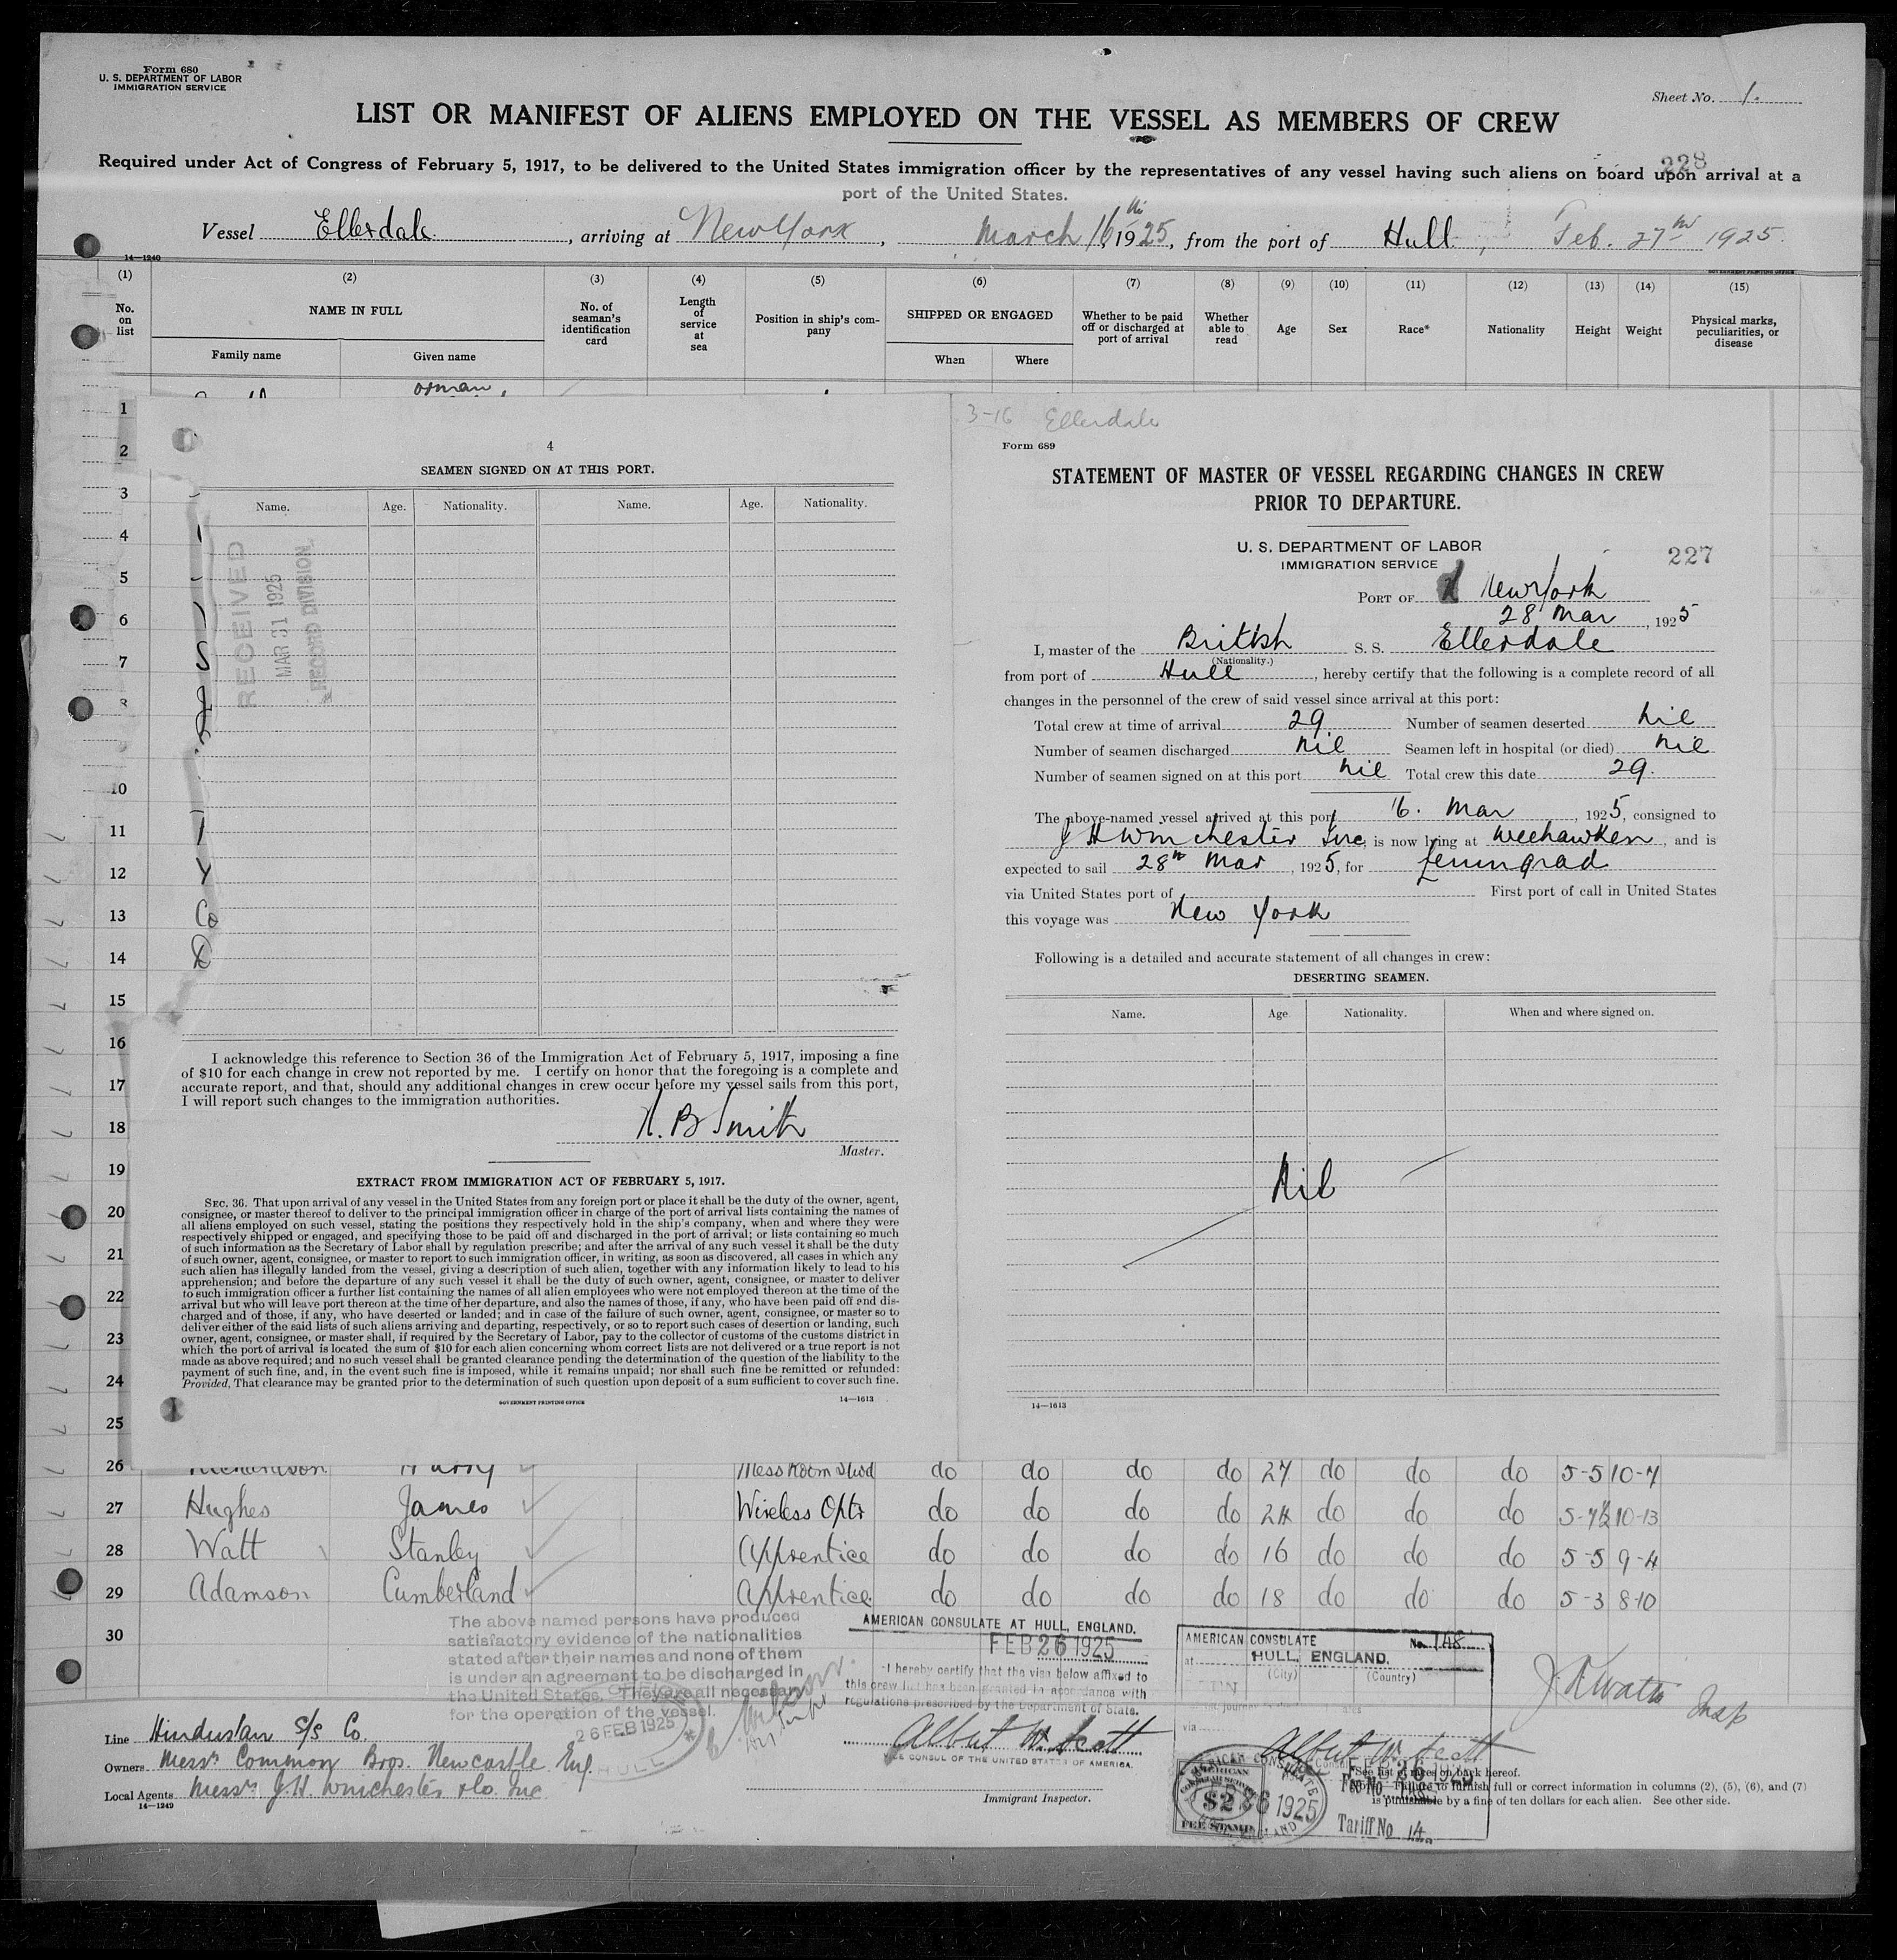 Form 680
U. S. DEPARTMENT OF LABOR
IMMIGRATION SERVICE
Sheet No. 1.
LIST OR MANIFEST OF ALIENS EMPLOYED ON THE VESSEL AS MEMBERS OF CREW
228
Required under Act of Congress of February 5, 1917, to be delivered to the United States immigration officer by the representatives of any vessel having such aliens on board upon arrival at a
port of the United States.
Vessel Ellerdale, arriving at New York, March 16th 1925, from the port of Hull, Feb. 27th 1925.
14—1240
GOVERNMENT PRINTING OFFICE
(1) (2) (3) (4) (5) (6) (7) (8) (9) (10) (11) (12) (13) (14) (15)
No. on list
NAME IN FULL
Family name
Given name
No. of seaman's identification card
Length of service at sea
Position in ship's company
SHIPPED OR ENGAGED
When
Where
Whether to be paid off or discharged at port of arrival
Whether able to read
Age
Sex
Race*
Nationality
Height
Weight
Physical marks, peculiarities, or disease
1
2
3
4
5
6
7
8
10
11
12
13
14
15
16
17
18
19
20
21
22
23
24
25
4
SEAMEN SIGNED ON AT THIS PORT.
Name. Age. Nationality. Name. Age. Nationality.
RECEIVED
MAR 31 1925
RECORD DIVISION
I acknowledge this reference to Section 36 of the Immigration Act of February 5, 1917, imposing a fine
of $10 for each change in crew not reported by me. I certify on honor that the foregoing is a complete and
accurate report, and that, should any additional changes in crew occur before my vessel sails from this port,
I will report such changes to the immigration authorities.
H. B Smith
Master.
EXTRACT FROM IMMIGRATION ACT OF FEBRUARY 5, 1917.
SEC. 36. That upon arrival of any vessel in the United States from any foreign port or place it shall be the duty of the owner, agent,
consignee, or master thereof to deliver to the principal immigration officer in charge of the port of arrival lists containing the names of
all aliens employed on such vessel, stating the positions they respectively hold in the ship's company, when and where they were
respectively shipped or engaged, and specifying those to be paid off and discharged in the port of arrival; or lists containing so much
of such information as the Secretary of Labor shall by regulation prescribe; and after the arrival of any such vessel it shall be the duty
of such owner, agent, consignee, or master to report to such immigration officer, in writing, as soon as discovered, all cases in which any
such alien has illegally landed from the vessel, giving a description of such alien, together with any information likely to lead to his
apprehension; and before the departure of any such vessel it shall be the duty of such owner, agent, consignee, or master to deliver
to such immigration officer a further list containing the names of all alien employees who were not employed thereon at the time of the
arrival but who will leave port thereon at the time of her departure, and also the names of those, if any, who have been paid off and dis-
charged and of those, if any, who have deserted or landed; and in case of the failure of such owner, agent, consignee, or master so to
deliver either of the said lists of such aliens arriving and departing, respectively, or so to report such cases of desertion or landing, such
owner, agent, consignee, or master shall, if required by the Secretary of Labor, pay to the collector of customs of the customs district in
which the port of arrival is located the sum of $10 for each alien concerning whom correct lists are not delivered or a true report is not
made as above required; and no such vessel shall be granted clearance pending the determination of the question of the liability to the
payment of such fine, and, in the event such fine is imposed, while it remains unpaid; nor shall such fine be remitted or refunded:
Provided, That clearance may be granted prior to the determination of such question upon deposit of a sum sufficient to cover such fine.
GOVERNMENT PRINTING OFFICE
14—1613
3-16 Ellerdale
Form 689
STATEMENT OF MASTER OF VESSEL REGARDING CHANGES IN CREW
PRIOR TO DEPARTURE.
U. S. DEPARTMENT OF LABOR
IMMIGRATION SERVICE
227
PORT OF New York
28 Mar, 1925
I, master of the British S. S. Ellerdale
(Nationality.)
from port of Hull, hereby certify that the following is a complete record of all
changes in the personnel of the crew of said vessel since arrival at this port:
Total crew at time of arrival 29. Number of seamen deserted nil
Number of seamen discharged nil Seamen left in hospital (or died) nil
Number of seamen signed on at this port nil Total crew this date 29.
The above-named vessel arrived at this port 16. Mar, 1925, consigned to
J H Winchester Inc, is now lying at Weehawken, and is
expected to sail 28th Mar, 1925, for Leningrad
via United States port of First port of call in United States
this voyage was New York
Following is a detailed and accurate statement of all changes in crew:
DESERTING SEAMEN.
Name. Age. Nationality. When and where signed on.
Nil
14—1613
26 Richardson Harry Mess Room Stwd do do do do 27 do do do 5-5 10-7
27 Hughes James Wireless Optr do do do do 24 do do do 5-7½ 10-13
28 Watt Stanley Apprentice do do do do 16 do do do 5-5 9-4
29 Adamson Cumberland Apprentice do do do do 18 do do do 5-3 8-10
30
The above named persons have produced
satisfactory evidence of the nationalities
stated after their names and none of them
is under an agreement to be discharged in
the United States. They are all necessary
for the operation of the vessel.
26 FEB 1925
HULL
AMERICAN CONSULATE AT HULL, ENGLAND.
FEB 26 1925
I hereby certify that the visa below affixed to
this crew list has been granted in accordance with
regulations prescribed by the Department of State.
Albert W. Scott
VICE CONSUL OF THE UNITED STATES OF AMERICA.
Immigrant Inspector.
AMERICAN CONSULATE No. 148
at HULL, ENGLAND.
(City) (Country)
via
Albert W. Scott
AMERICAN CONSULAR SERVICE
$2
FEE STAMP
FEB 26 1925
Fee No.
Tariff No 14
*See list of races on back hereof.
Failure to furnish full or correct information in columns (2), (5), (6), and (7)
is punishable by a fine of ten dollars for each alien. See other side.
Insp
Line Hindustan S/S Co.
Owners Messrs Common Bros. Newcastle Eng.
Local Agents Messrs J.H. Winchester & Co. Inc
14—1249